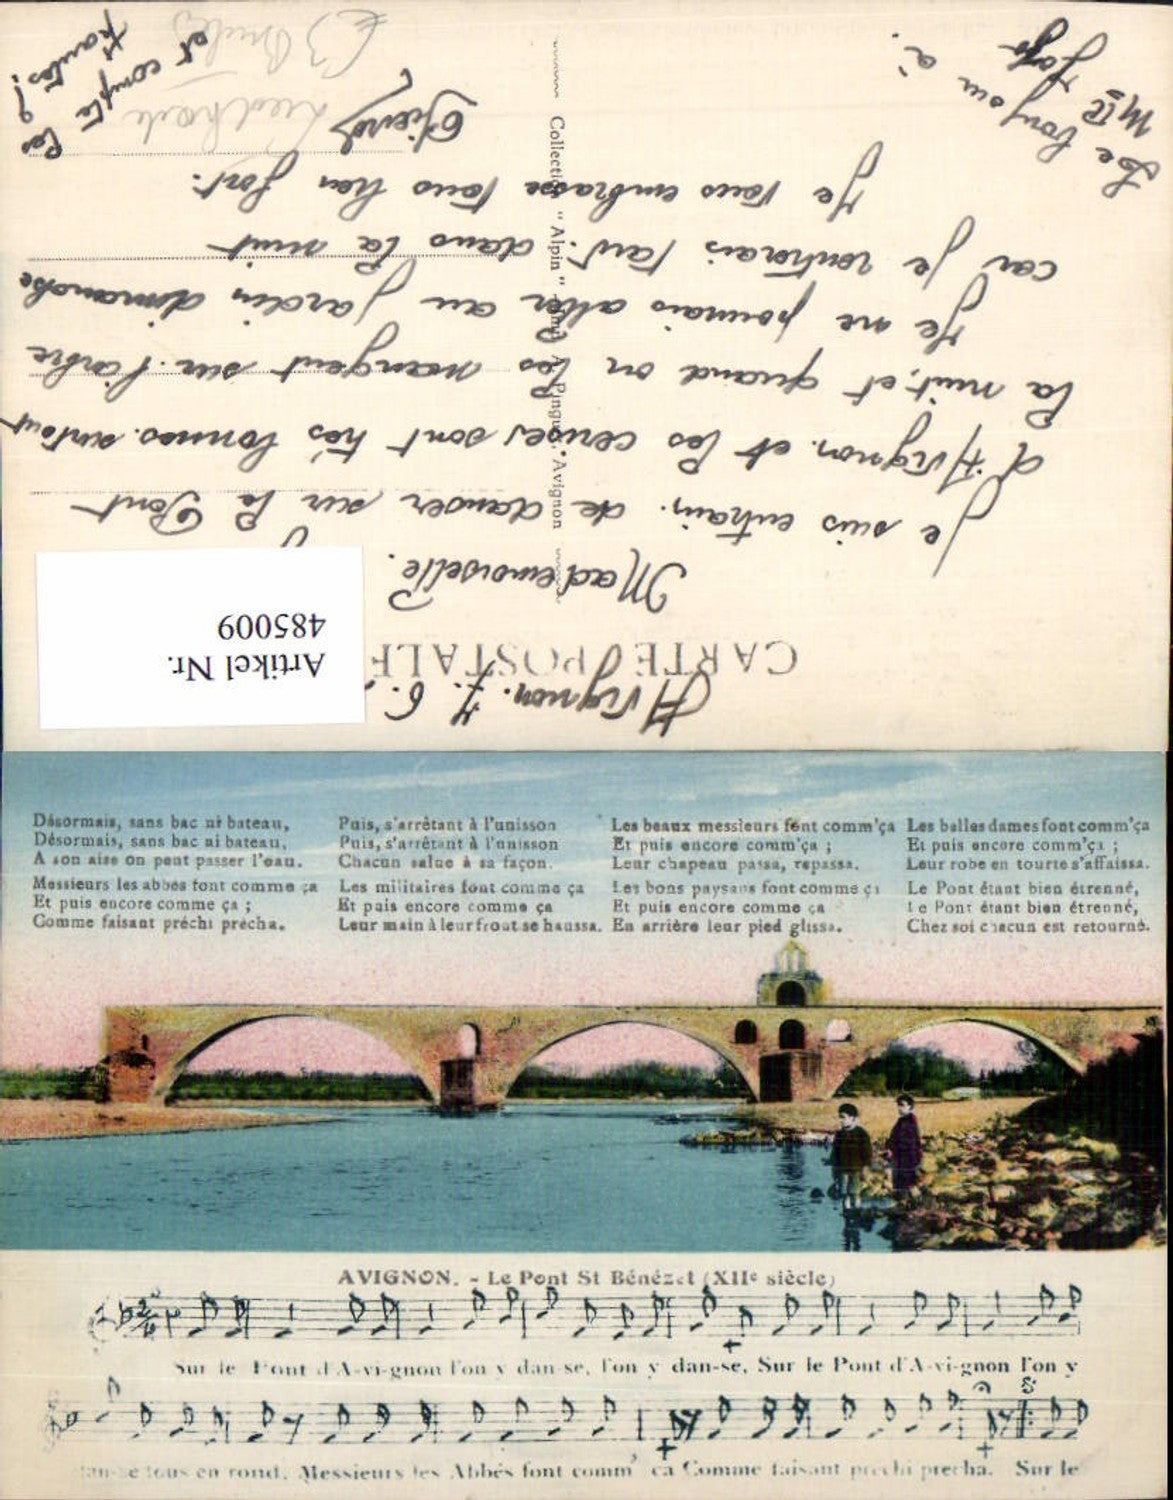 Avignon. 7. 6.
CARTE POSTALE
Artikel Nr.
485009
Mademoiselle.
Je suis entrain de danser sur le Pont
d'Avignon. et les cerises sont très bonnes. surtout
la nuit, et quand on les mangent sur l'arbre
Je ne pourrais aller au jardin dimanche
car je rentrerais tard. dans la nuit
Je vous embrasse tous bien fort.
Pierre
Le bonjour à
Mlle
et compte les
Collection "Alpin" A. Avignon
Désormais, sans bac ni bateau,
Désormais, sans bac ni bateau,
A son aise on peut passer l'eau.
Messieurs les abbés font comme ça
Et puis encore comme ça ;
Comme faisant prêchi prêcha.
Puis, s'arrêtant à l'unisson
Puis, s'arrêtant à l'unisson
Chacun salue à sa façon.
Les militaires font comme ça
Et puis encore comme ça
Leur main à leur front se haussa.
Les beaux messieurs font comm'ça
Et puis encore comm'ça ;
Leur chapeau passa, repassa.
Les bons paysans font comme ça
Et puis encore comme ça
En arrière leur pied glissa.
Les belles dames font comm'ça
Et puis encore comm'ça ;
Leur robe en tourte s'affaissa.
Le Pont étant bien étrenné,
Le Pont étant bien étrenné,
Chez soi chacun est retourné.
AVIGNON. - Le Pont St Bénézet (XIIe siècle)
Sur le Pont d'A-vi-gnon l'on y dan-se, l'on y dan-se, Sur le Pont d'A-vi-gnon l'on y
dan-se tous en rond. Messieurs les Abbés font comm' ça Comme faisant prechi precha. Sur le